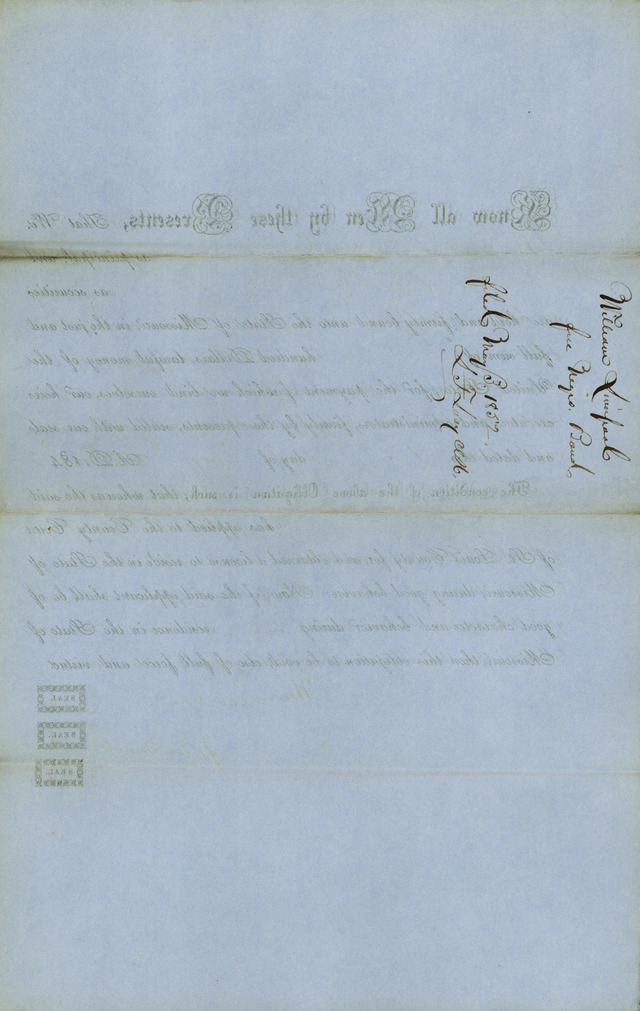 William Liverpool
free Negro. Bond,
filed May 3, 1852
Know all Men by these Presents, That We,
as principal, and
as securities
are held and firmly bound unto the State of Missouri in the just and
full sum of hundred Dollars, lawful money of the
for the payment of which we bind ourselves, our heirs
executors and administrators, firmly by these presents, sealed with our seals
and dated this day of A.D. 184
The condition of the above Obligation is such, that whereas the said
has applied to the County Court
of St. Louis County for and obtained a license to reside in the State of
Missouri during good behavior: Now, if the said applicant shall be of
good character and behavior during residence in the State of
Missouri then this obligation to be void, else of full force and virtue
SEAL
SEAL.
SEAL.